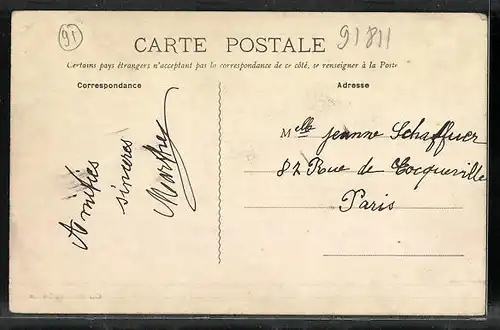 91
CARTE POSTALE
91811
Certains pays étrangers n'acceptant pas la correspondance de ce côté, se renseigner à la Poste
Correspondance
Adresse
Amitiés
sincères
Marthe
Mlle Jeanne Schaffner
82 Rue de Tocqueville
Paris